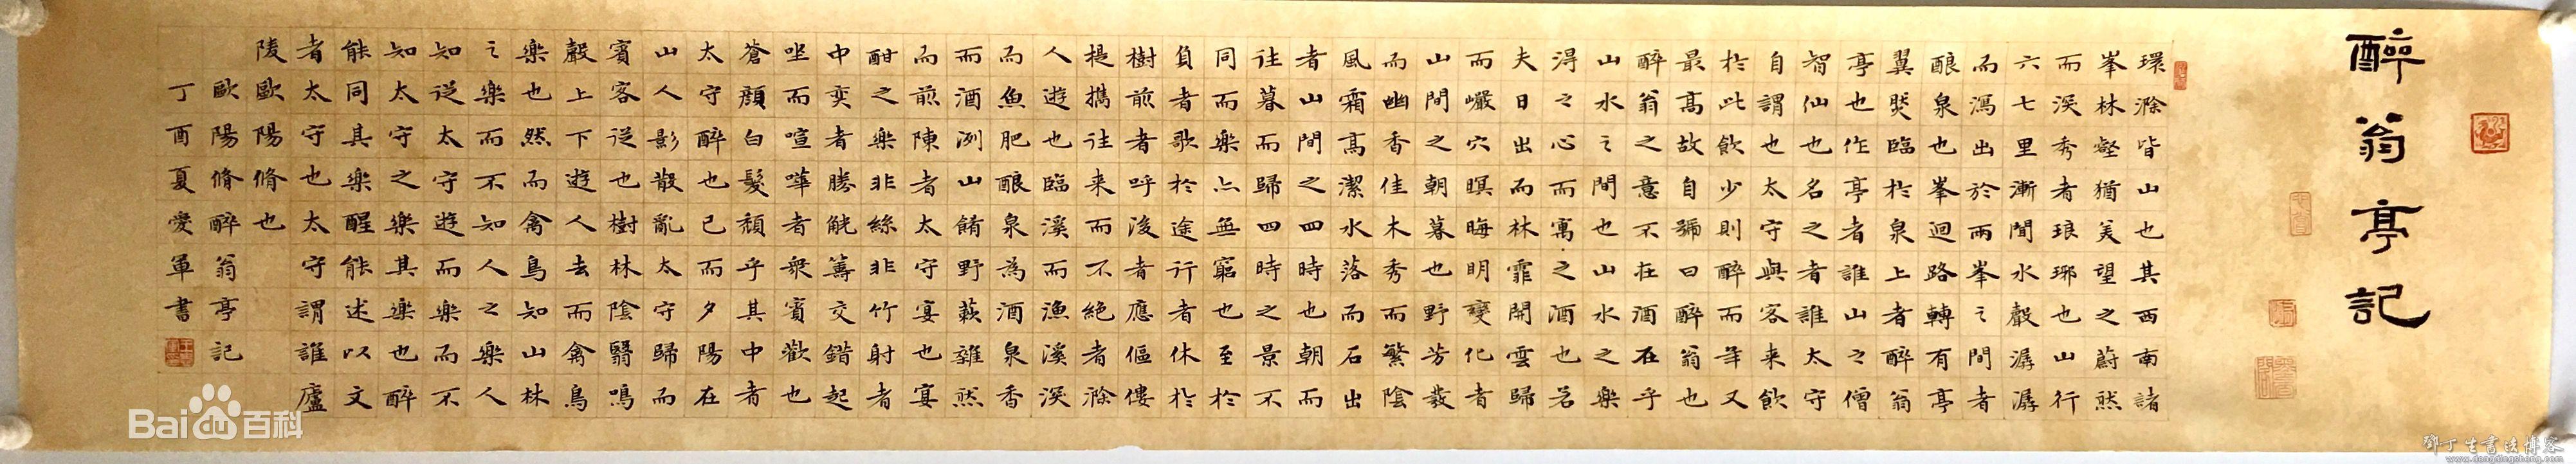 醉翁亭記
環滁皆山也其西南諸
峯林壑猶美望之蔚然
而深秀者琅琊也山行
六七里漸聞水聲潺潺
而瀉出於兩峯之間者
釀泉也峯迴路轉有亭
翼然臨於泉上者醉翁
亭也作亭者誰山之僧
智仙也名之者誰太守
自謂也太守與客来飲
於此飲少則醉而年又
最高故自號曰醉翁也
醉翁之意不在酒在乎
山水之間也山水之樂
得之心而寓之酒也若
夫日出而林霏開雲歸
而巖穴暝晦明變化者
山間之朝暮也野芳發
而幽香佳木秀而繁陰
風霜高潔水落而石出
者山間之四時也朝而
往暮而歸四時之景不
同而樂亦無窮也至於
負者歌於途行者休於
樹前者呼後者應傴僂
提攜往来而不絕者滁
人遊也臨溪而漁溪深
而魚肥釀泉為酒泉香
而酒洌山餚野蔌雜然
而前陳者太守宴也宴
酣之樂非絲非竹射者
中奕者勝觥籌交錯起
坐而喧嘩者衆賓歡也
蒼顏白髮頹乎其中者
太守醉也已而夕陽在
山人影散亂太守歸而
賓客從也樹林陰翳鳴
聲上下遊人去而禽鳥
樂也然而禽鳥知山林
之樂而不知人之樂人
知從太守遊而樂而不
知太守之樂其樂也醉
能同其樂醒能述以文
者太守也太守謂誰廬
陵歐陽脩也
歐陽脩醉翁亭記
丁酉夏愛軍書
Bai du 百科
鄧丁生書法博客
www.dengdingsheng.com